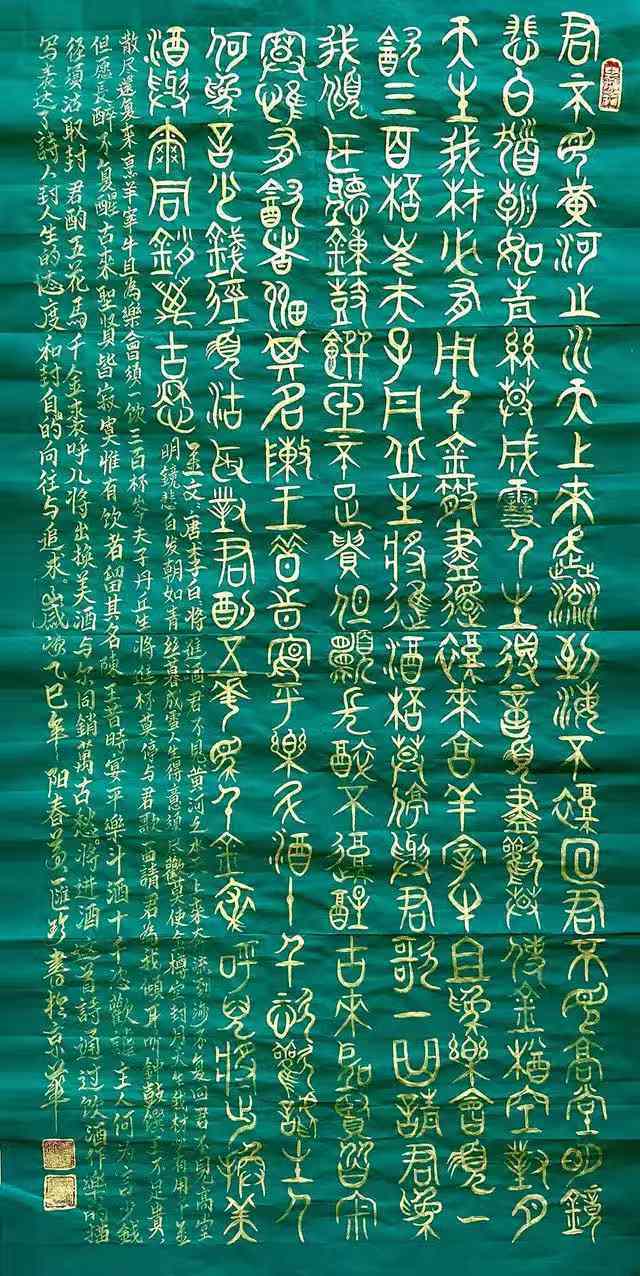 君不見黃河之水天上來奔流到海不復回君不見高堂明鏡
悲白髮朝如青絲暮成雪人生得意須盡歡莫使金樽空對月
天生我材必有用千金散盡還復來烹羊宰牛且為樂會須一
飲三百杯岑夫子丹丘生將進酒杯莫停與君歌一曲請君為
我傾耳聽鐘鼓饌玉不足貴但願長醉不復醒古來聖賢皆寂
寞惟有飲者留其名陳王昔時宴平樂斗酒十千恣歡謔主人
何為言少錢徑須沽取對君酌五花馬千金裘呼兒將出換美
酒與爾同銷萬古愁
金文：唐李白将進酒君不見黄河之水天上来奔流到海不复回君不見高堂
明鏡悲白发朝如青丝暮成雪人生得意須尽歡莫使金樽空对月天生我材必有用千金
散尽還复来烹羊宰牛且為樂會須一饮三百杯岑夫子丹丘生将進杯莫停与君歌一曲請君為我傾耳听鈡鼓饌玉不足貴
但愿長醉不复醒古来聖賢皆寂寞惟有饮者留其名陳王昔時宴平樂斗酒十千恣歡謔主人何为言少銭
径須沽取封君酌五花馬千金裘呼儿将出换美酒与尔同銷萬古愁。将进酒这首詩通过饮酒作樂的描
写表达了詩人封人生的态度和封自由的向往与追求。歲次乙巳年阳春 匯珍書於京華